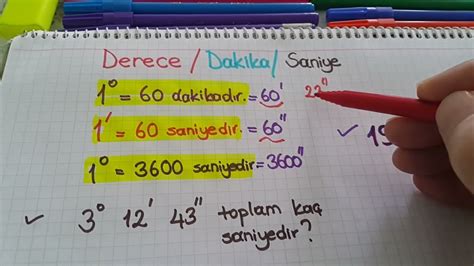 Derece / Dakika / Saniye
1° = 60 dakikadır. = 60'
1' = 60 saniyedir. = 60"
1° = 3600 saniyedir = 3600"
✓ 3° 12' 43" toplam kaç
saniyedir?
✓ 19